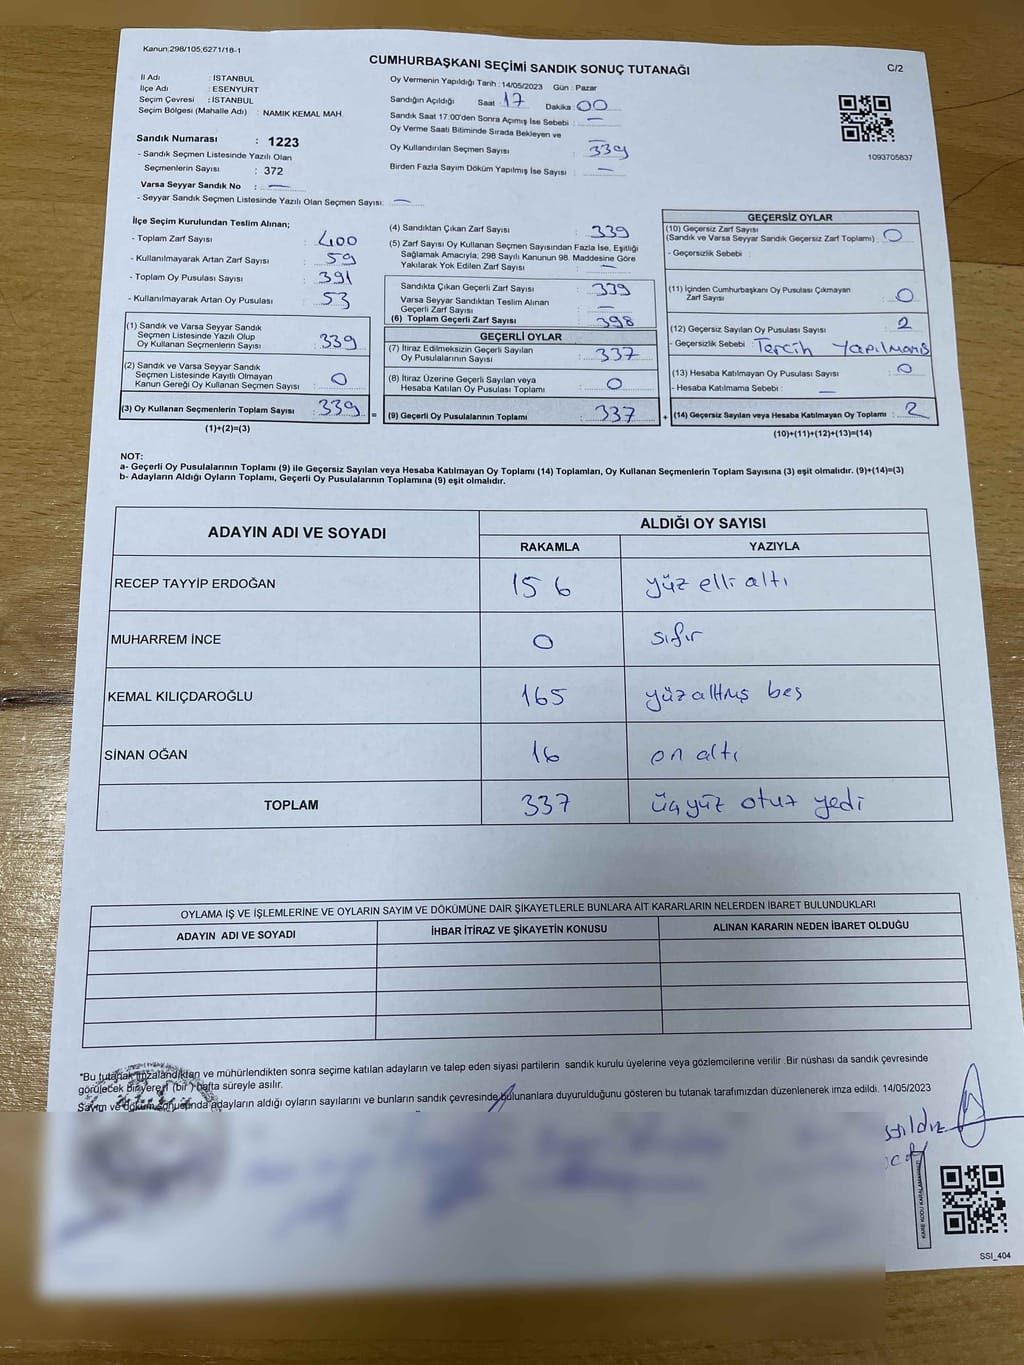 Kanun:298/105,6271/18-1
CUMHURBAŞKANI SEÇİMİ SANDIK SONUÇ TUTANAĞI
C/2
İl Adı : İSTANBUL
İlçe Adı : ESENYURT
Seçim Çevresi : İSTANBUL
Seçim Bölgesi (Mahalle Adı) : NAMIK KEMAL MAH.
Sandık Numarası : 1223
- Sandık Seçmen Listesinde Yazılı Olan
Seçmenlerin Sayısı : 372
Varsa Seyyar Sandık No : —
- Seyyar Sandık Seçmen Listesinde Yazılı Olan Seçmen Sayısı: —
Oy Vermenin Yapıldığı Tarih : 14/05/2023 Gün : Pazar
Sandığın Açıldığı Saat : 17 Dakika : 00
Sandık Saat 17:00'den Sonra Açımış İse Sebebi : —
Oy Verme Saati Bitiminde Sırada Bekleyen ve : —
Oy Kullandırılan Seçmen Sayısı : 339
Birden Fazla Sayım Döküm Yapılmış İse Sayısı : —
1093705837
İlçe Seçim Kurulundan Teslim Alınan;
- Toplam Zarf Sayısı : 400
- Kullanılmayarak Artan Zarf Sayısı : 59
- Toplam Oy Pusulası Sayısı : 391
- Kullanılmayarak Artan Oy Pusulası : 53
(1) Sandık ve Varsa Seyyar Sandık
Seçmen Listesinde Yazılı Olup
Oy Kullanan Seçmenlerin Sayısı : 339
(2) Sandık ve Varsa Seyyar Sandık
Seçmen Listesinde Kayıtlı Olmayan
Kanun Gereği Oy Kullanan Seçmen Sayısı : 0
(3) Oy Kullanan Seçmenlerin Toplam Sayısı : 339 =
(1)+(2)=(3)
(4) Sandıktan Çıkan Zarf Sayısı : 339
(5) Zarf Sayısı Oy Kullanan Seçmen Sayısından Fazla İse, Eşitliği
Sağlamak Amacıyla; 298 Sayılı Kanunun 98. Maddesine Göre
Yakılarak Yok Edilen Zarf Sayısı : —
Sandıkta Çıkan Geçerli Zarf Sayısı : 339
Varsa Seyyar Sandıktan Teslim Alınan
Geçerli Zarf Sayısı : —
(6) Toplam Geçerli Zarf Sayısı : 398
GEÇERLİ OYLAR
(7) İtiraz Edilmeksizin Geçerli Sayılan
Oy Pusulalarının Sayısı : 337
(8) İtiraz Üzerine Geçerli Sayılan veya
Hesaba Katılan Oy Pusulası Toplamı : 0
(9) Geçerli Oy Pusulalarının Toplamı : 337 +
GEÇERSİZ OYLAR
(10) Geçersiz Zarf Sayısı
(Sandık ve Varsa Seyyar Sandık Geçersiz Zarf Toplamı) : 0
- Geçersizlik Sebebi :
(11) İçinden Cumhurbaşkanı Oy Pusulası Çıkmayan
Zarf Sayısı : 0
(12) Geçersiz Sayılan Oy Pusulası Sayısı : 2
- Geçersizlik Sebebi : Tercih Yapılmamış
(13) Hesaba Katılmayan Oy Pusulası Sayısı : 0
- Hesaba Katılmama Sebebi : —
(14) Geçersiz Sayılan veya Hesaba Katılmayan Oy Toplamı : 2
(10)+(11)+(12)+(13)=(14)
NOT:
a- Geçerli Oy Pusulalarının Toplamı (9) ile Geçersiz Sayılan veya Hesaba Katılmayan Oy Toplamı (14) Toplamları, Oy Kullanan Seçmenlerin Toplam Sayısına (3) eşit olmalıdır. (9)+(14)=(3)
b- Adayların Aldığı Oyların Toplamı, Geçerli Oy Pusulalarının Toplamına (9) eşit olmalıdır.
ADAYIN ADI VE SOYADI ALDIĞI OY SAYISI
RAKAMLA YAZIYLA
RECEP TAYYİP ERDOĞAN 156 yüz elli altı
MUHARREM İNCE 0 sıfır
KEMAL KILIÇDAROĞLU 165 yüz altmış beş
SİNAN OĞAN 16 on altı
TOPLAM 337 üçyüz otuz yedi
OYLAMA İŞ VE İŞLEMLERİNE VE OYLARIN SAYIM VE DÖKÜMÜNE DAİR ŞİKAYETLERLE BUNLARA AİT KARARLARIN NELERDEN İBARET BULUNDUKLARI
ADAYIN ADI VE SOYADI İHBAR İTİRAZ VE ŞİKAYETİN KONUSU ALINAN KARARIN NEDEN İBARET OLDUĞU
*Bu tutanak imzalandıktan ve mühürlendikten sonra seçime katılan adayların ve talep eden siyasi partilerin sandık kurulu üyelerine veya gözlemcilerine verilir. Bir nüshası da sandık çevresinde
görülecek bir yere (bir) hafta süreyle asılır.
Sayım ve döküm sonucunda adayların aldığı oyların sayılarını ve bunların sandık çevresinde bulunanlara duyurulduğunu gösteren bu tutanak tarafımızdan düzenlenerek imza edildi. 14/05/2023
KARE KODU KARALAMAYINIZ
SSI_404